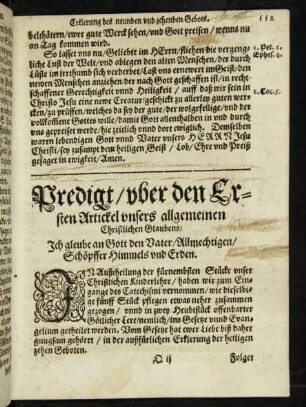 Erklerung des neunden vnd zehenden Gebots. 152
belthätern/ ewre gute Werck sehen/ vnd Gott preisen/ wenns nu
an Tag kommen wird.
So lasset vns nu/ Geliebte im HErrn/ fliehen die vergeng- 1. Pet. 2.
liche Lust der Welt/ vnd ablegen den alten Menschen/ der durch Ephes. 4.
Lüste im irrthumb sich verderbet/ Last vns ernewert im Geist/ den
newen Menschen anziehen der nach Gott geschaffen ist/ in recht-
schaffener Gerechtigkeit vnnd Heiligkeit/ auff daß wir sein in
Christo Jesu eine newe Creatur geschickt zu allerley guten wer- 2. Cor. 5.
cken/ zu prüffen/ welches da sey der gute/ der wolgefellige/ vnd der
vollkoffiene Gottes wille/ damit Gott allenthalben in vnd durch
vns gepreiset werde/ hie zeitlich vnnd dort ewiglich. Demselben
waren lebendigen Gott vnnd Vater vnsers HERRN Jesu
Christi/ sey zusampt dem heiligen Geist/ Lob/ Ehre vnd Preiß
gesaget in ewigkeit/ Amen.
Predigt/ vber den Er-
sten Artickel vnsers allgemeinen
Christlichen Glaubens/
Ich gleube an Gott den Vater/ Allmechtigen/
Schöpffer Himmels vnd Erden.
IN Auffteilung der fürnembsten Stücke vnser
Christlichen Kinderlehre/ haben wir zum Ein-
gange des Catechismi vernommen/ wie dieselbi-
ge vnnd fünff Stück pflegen etwas neher zusammen
gezogen/ vnnd in zwey Heubstück offenbarter
Götlicher Lere/ nemlich/ ins Gesetze vnnd Euan-
gelium getheilet werden. Vom Gesetze hat ewer Liebe biß daher
gnugsam gehöret/ in der außfürlichen Erklerung der heiligen
zehen Geboten.
Q ij Folget